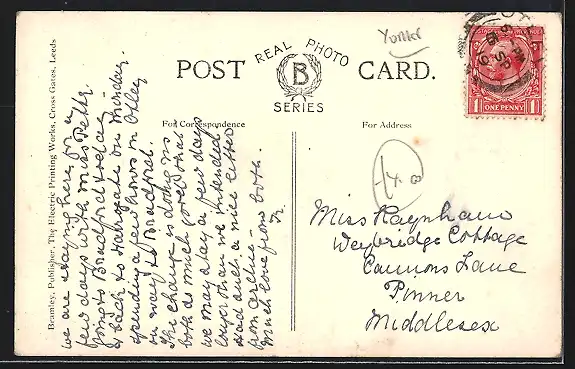 Yorks
REAL PHOTO
POST B CARD.
SERIES
For Correspondence
For Address
Bramley, Publisher, The Electric Printing Works, Cross Gates, Leeds
we are staying here for a
few days with Miss Petty.
going to Bradford today
& back to Harrogate on Monday.
spending a few hours in Otley
on way to Bradford.
The change is doing us
both as much good that
we may stay a few days
longer than we intended
Had such a nice letter
from
much love from both.
Miss Raynham
Weybridge Cottage
Cannons Lane
Pinner
Middlesex
ONE PENNY